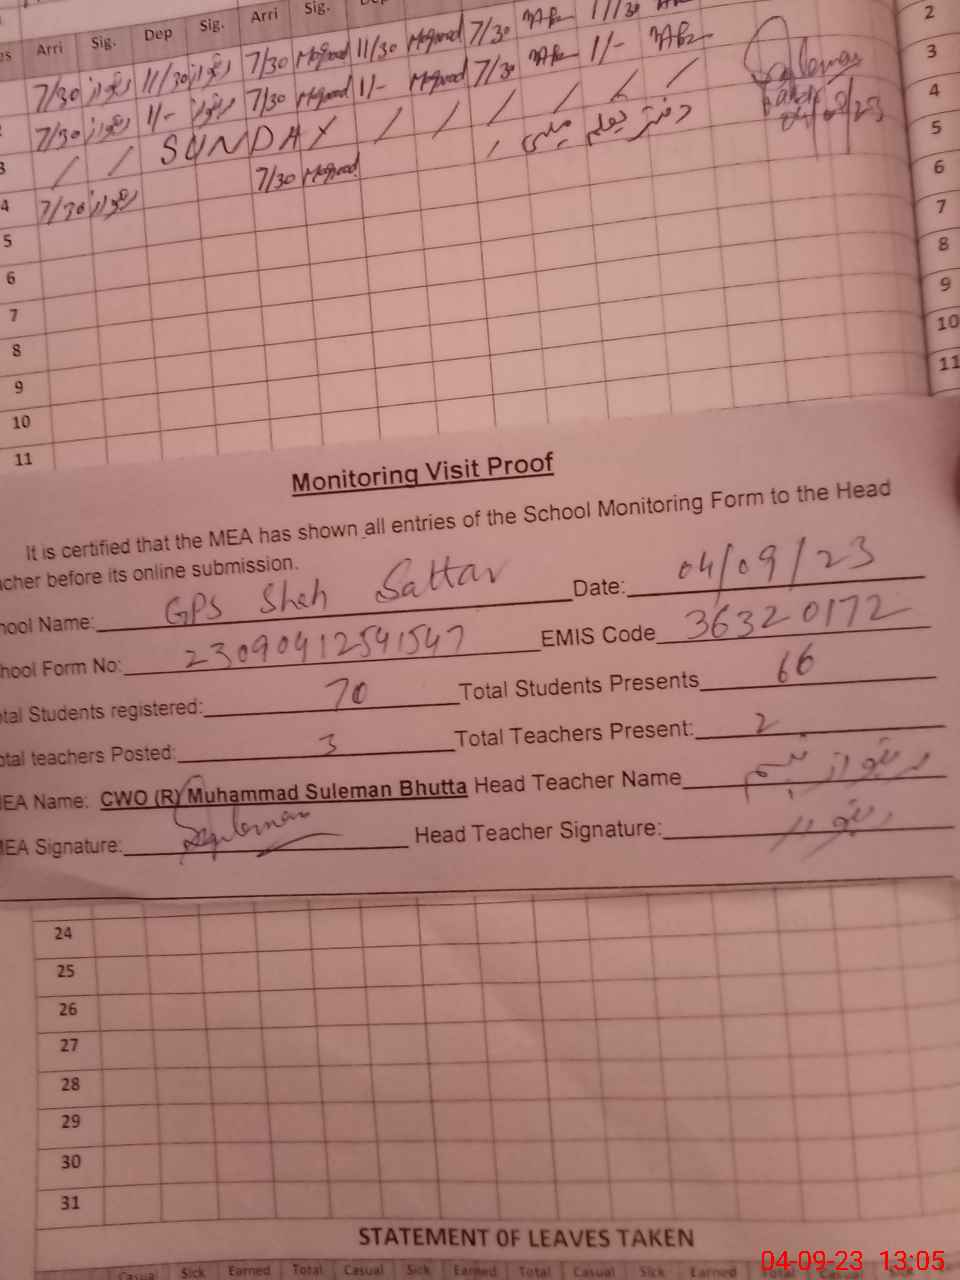 Arri Sig. Dep Sig. Arri Sig.
7/30 11/30 7/30 11/30 7/30 11/30 2
7/30 1/- 7/30 1/- 7/30 1/- Suleman 3
3 / / SUNDAY / / / / / / 4
4 7/30 7/30 , میلسی تعلیم دفتر 04/09/23 5
5 6
6 7
7 8
8 9
9 10
10 11
11
Monitoring Visit Proof
It is certified that the MEA has shown all entries of the School Monitoring Form to the Head
acher before its online submission.
hool Name: GPS Shah Sattar Date: 04/09/23
hool Form No: 23090412541547 EMIS Code 36320172
tal Students registered: 70 Total Students Presents 66
otal teachers Posted: 3 Total Teachers Present: 2
MEA Name: CWO (R) Muhammad Suleman Bhutta Head Teacher Name
MEA Signature: Suleman Head Teacher Signature:
24
25
26
27
28
29
30
31
STATEMENT OF LEAVES TAKEN
Casual Sick Earned Total Casual Sick Earned Total Casual Sick Earned Total
04-09-23 13:05